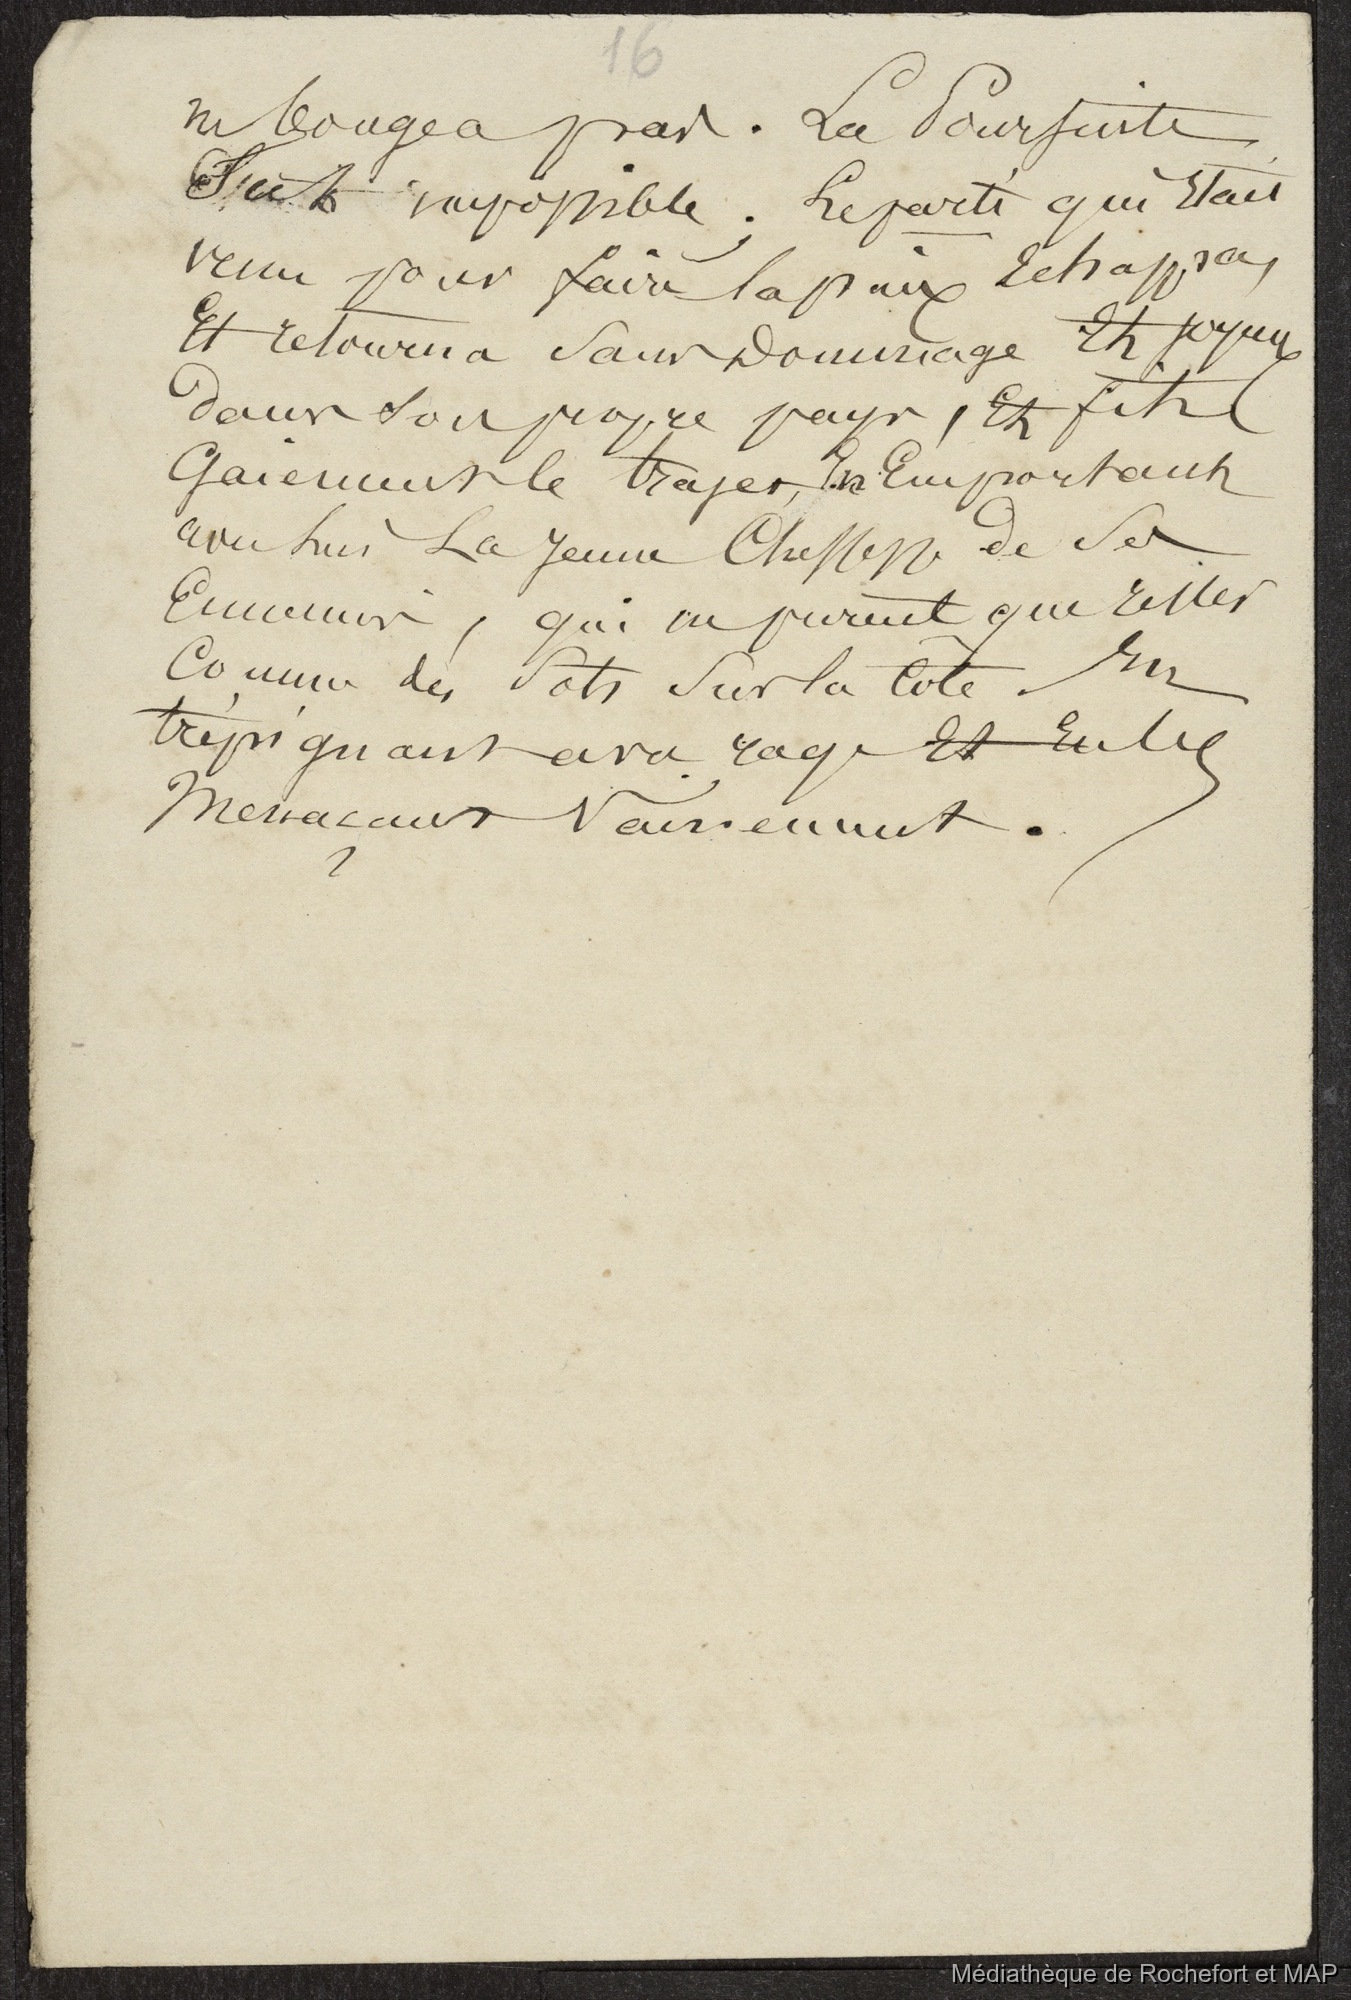 16
ne bougea pas. La Poursuite
Fut impossible. Le parti qui était
venu pour faire la paix Echappa,
Et retourna sans Dommage Et joyeux
dans son propre pays, Et fit
Gaiement le trajet, En Emportant
avec lui La jeune Cheffesse de Ses
Ennemis, qui ne purent que rester
Comme des Sots sur la Côte En
trépignant avec rage Et En les
Menaçant Vainement.
Médiathèque de Rochefort et MAP